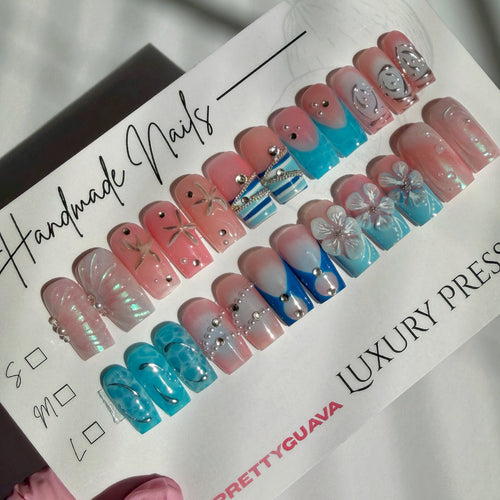 Handmade Nails
S
M
L
PRETTYGUAVA
LUXURY PRESS